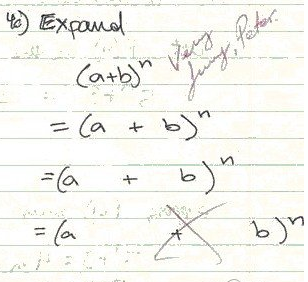 4c) Expand
Very
funny, Peter.
(a+b)ⁿ
= (a + b)ⁿ
= (a + b)ⁿ
= (a + b)ⁿ